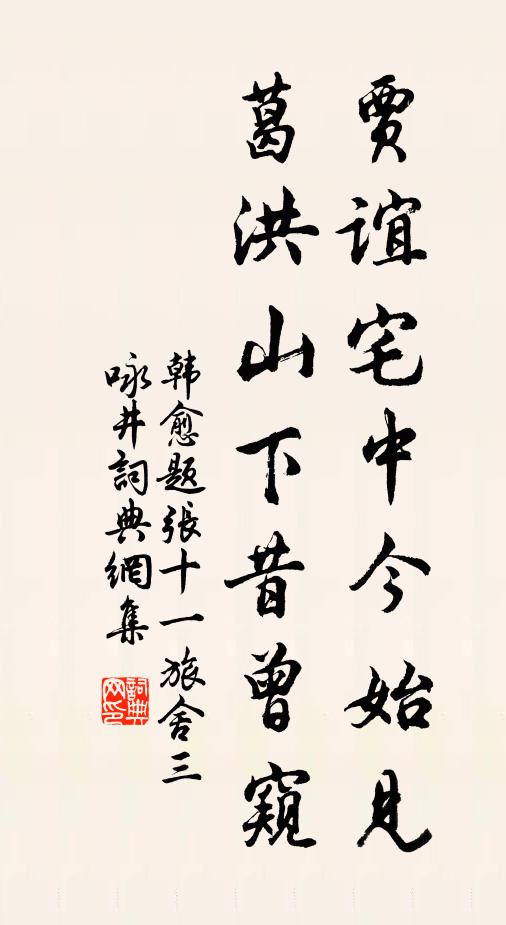 賈誼宅中今始見
葛洪山下昔曾窺
韩愈题張十一旅舍三
咏井詞典網集
詞典
网印